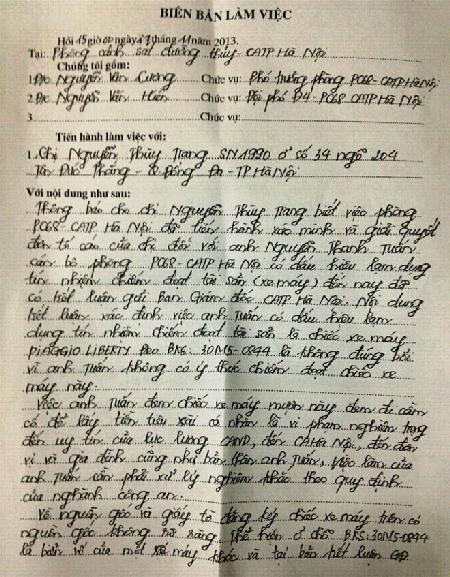 BIÊN BẢN LÀM VIỆC
Hồi 15 giờ 00 ngày 27 tháng 11 năm 2013.
Tại: Phòng cảnh sát đường thủy CATP Hà Nội
Chúng tôi gồm:
1. Đ/c Nguyễn Văn Cương Chức vụ: Phó trưởng phòng PC68 - CATP Hà Nội
2. Đ/c Nguyễn Văn Hiến Chức vụ: Đội phó Đ4 - PC68 CATP Hà Nội
3. Chức vụ:
Tiến hành làm việc với:
1. Chị Nguyễn Thùy Trang SN 1990 ở số 34 ngõ 204
Tôn Đức Thắng - Q Đống Đa - TP Hà Nội
Với nội dung như sau:
Thông báo cho chị Nguyễn Thùy Trang biết việc phòng
PC68 - CATP Hà Nội đã tiến hành xác minh và giải quyết
đơn tố cáo của chị đối với anh Nguyễn Thanh Tuấn
cán bộ phòng PC68 - CATP Hà Nội có dấu hiệu lạm dụng
tín nhiệm chiếm đoạt tài sản (xe máy) đến nay đã
có kết luận gửi Ban Giám đốc CATP Hà Nội. Nội dung
kết luận xác định việc anh Tuấn có dấu hiệu lạm
dụng tín nhiệm chiếm đoạt tài sản là chiếc xe máy
PIAGGIO LIBERTY đeo BKS: 30M5-0944 là không đúng bởi
vì anh Tuấn không có ý thức chiếm đoạt chiếc xe
máy này.
Việc anh Tuấn đem chiếc xe máy mượn này đem đi cầm
cố để lấy tiền tiêu xài cá nhân là vi phạm nghiêm trọng
đến uy tín của lực lượng CAND, đến CAHà Nội, đến đơn
vị và gia đình cũng như bản thân anh Tuấn. Việc làm của
anh Tuấn cần phải xử lý nghiêm khắc theo quy định
của nghành công an.
Về nguồn gốc và giấy tờ đăng ký chiếc xe máy trên có
nguồn gốc không rõ ràng thể hiện ở chỗ BKS: 30M5-0944
là biển số của một xe máy khác và tại bản kết luận